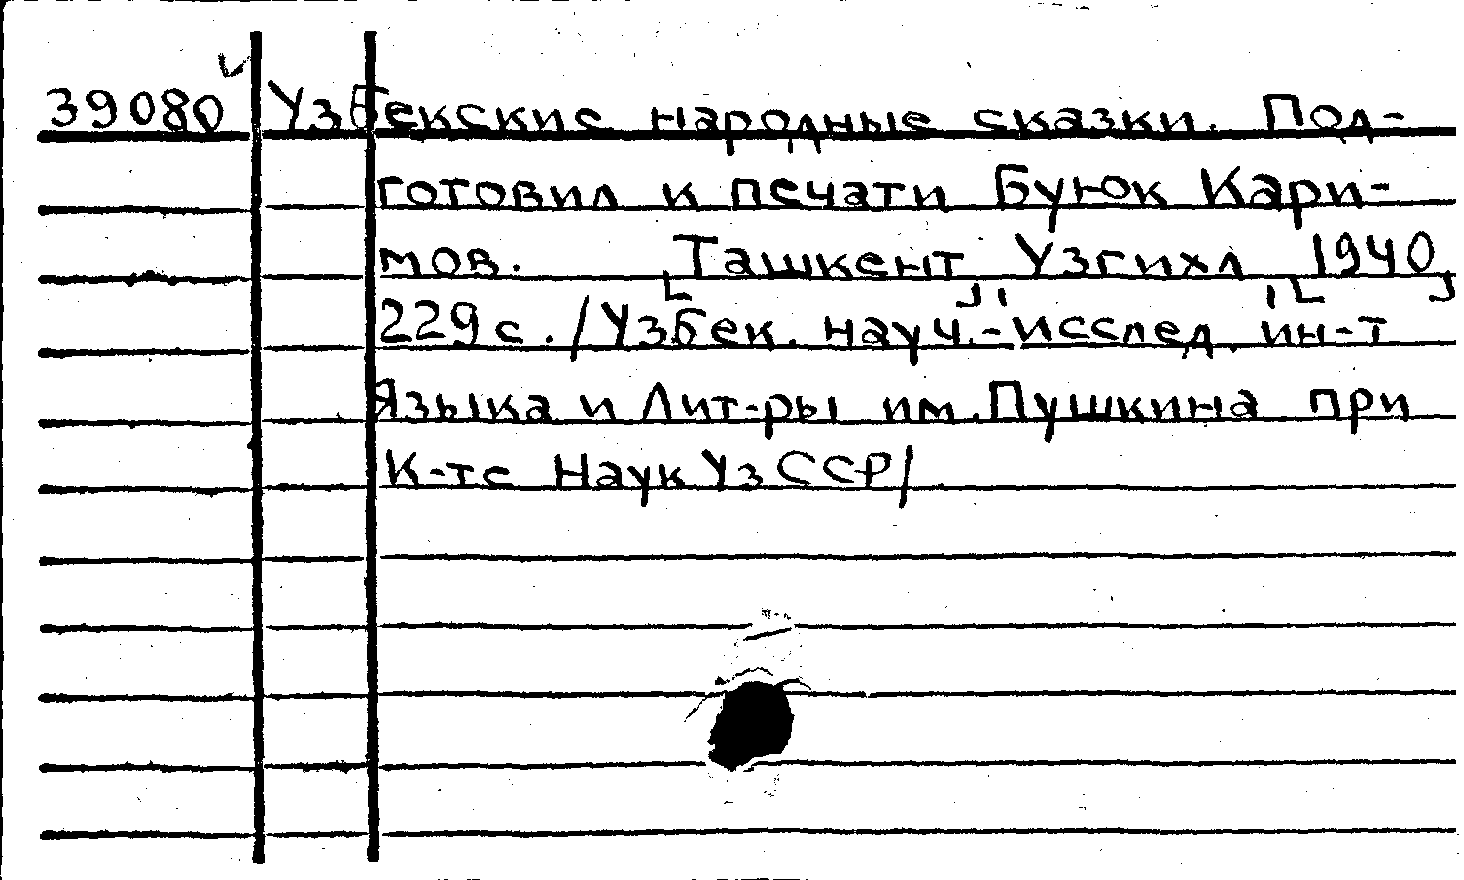 39080 Узбекские народные сказки. Под-
готовил к печати Буюк Кари-
мов. [Ташкент], Узгихл, [1940],
229 с. /Узбек. науч.-исслед. ин-т
Языка и Лит-ры им. Пушкина при
К-те Наук УзССР/